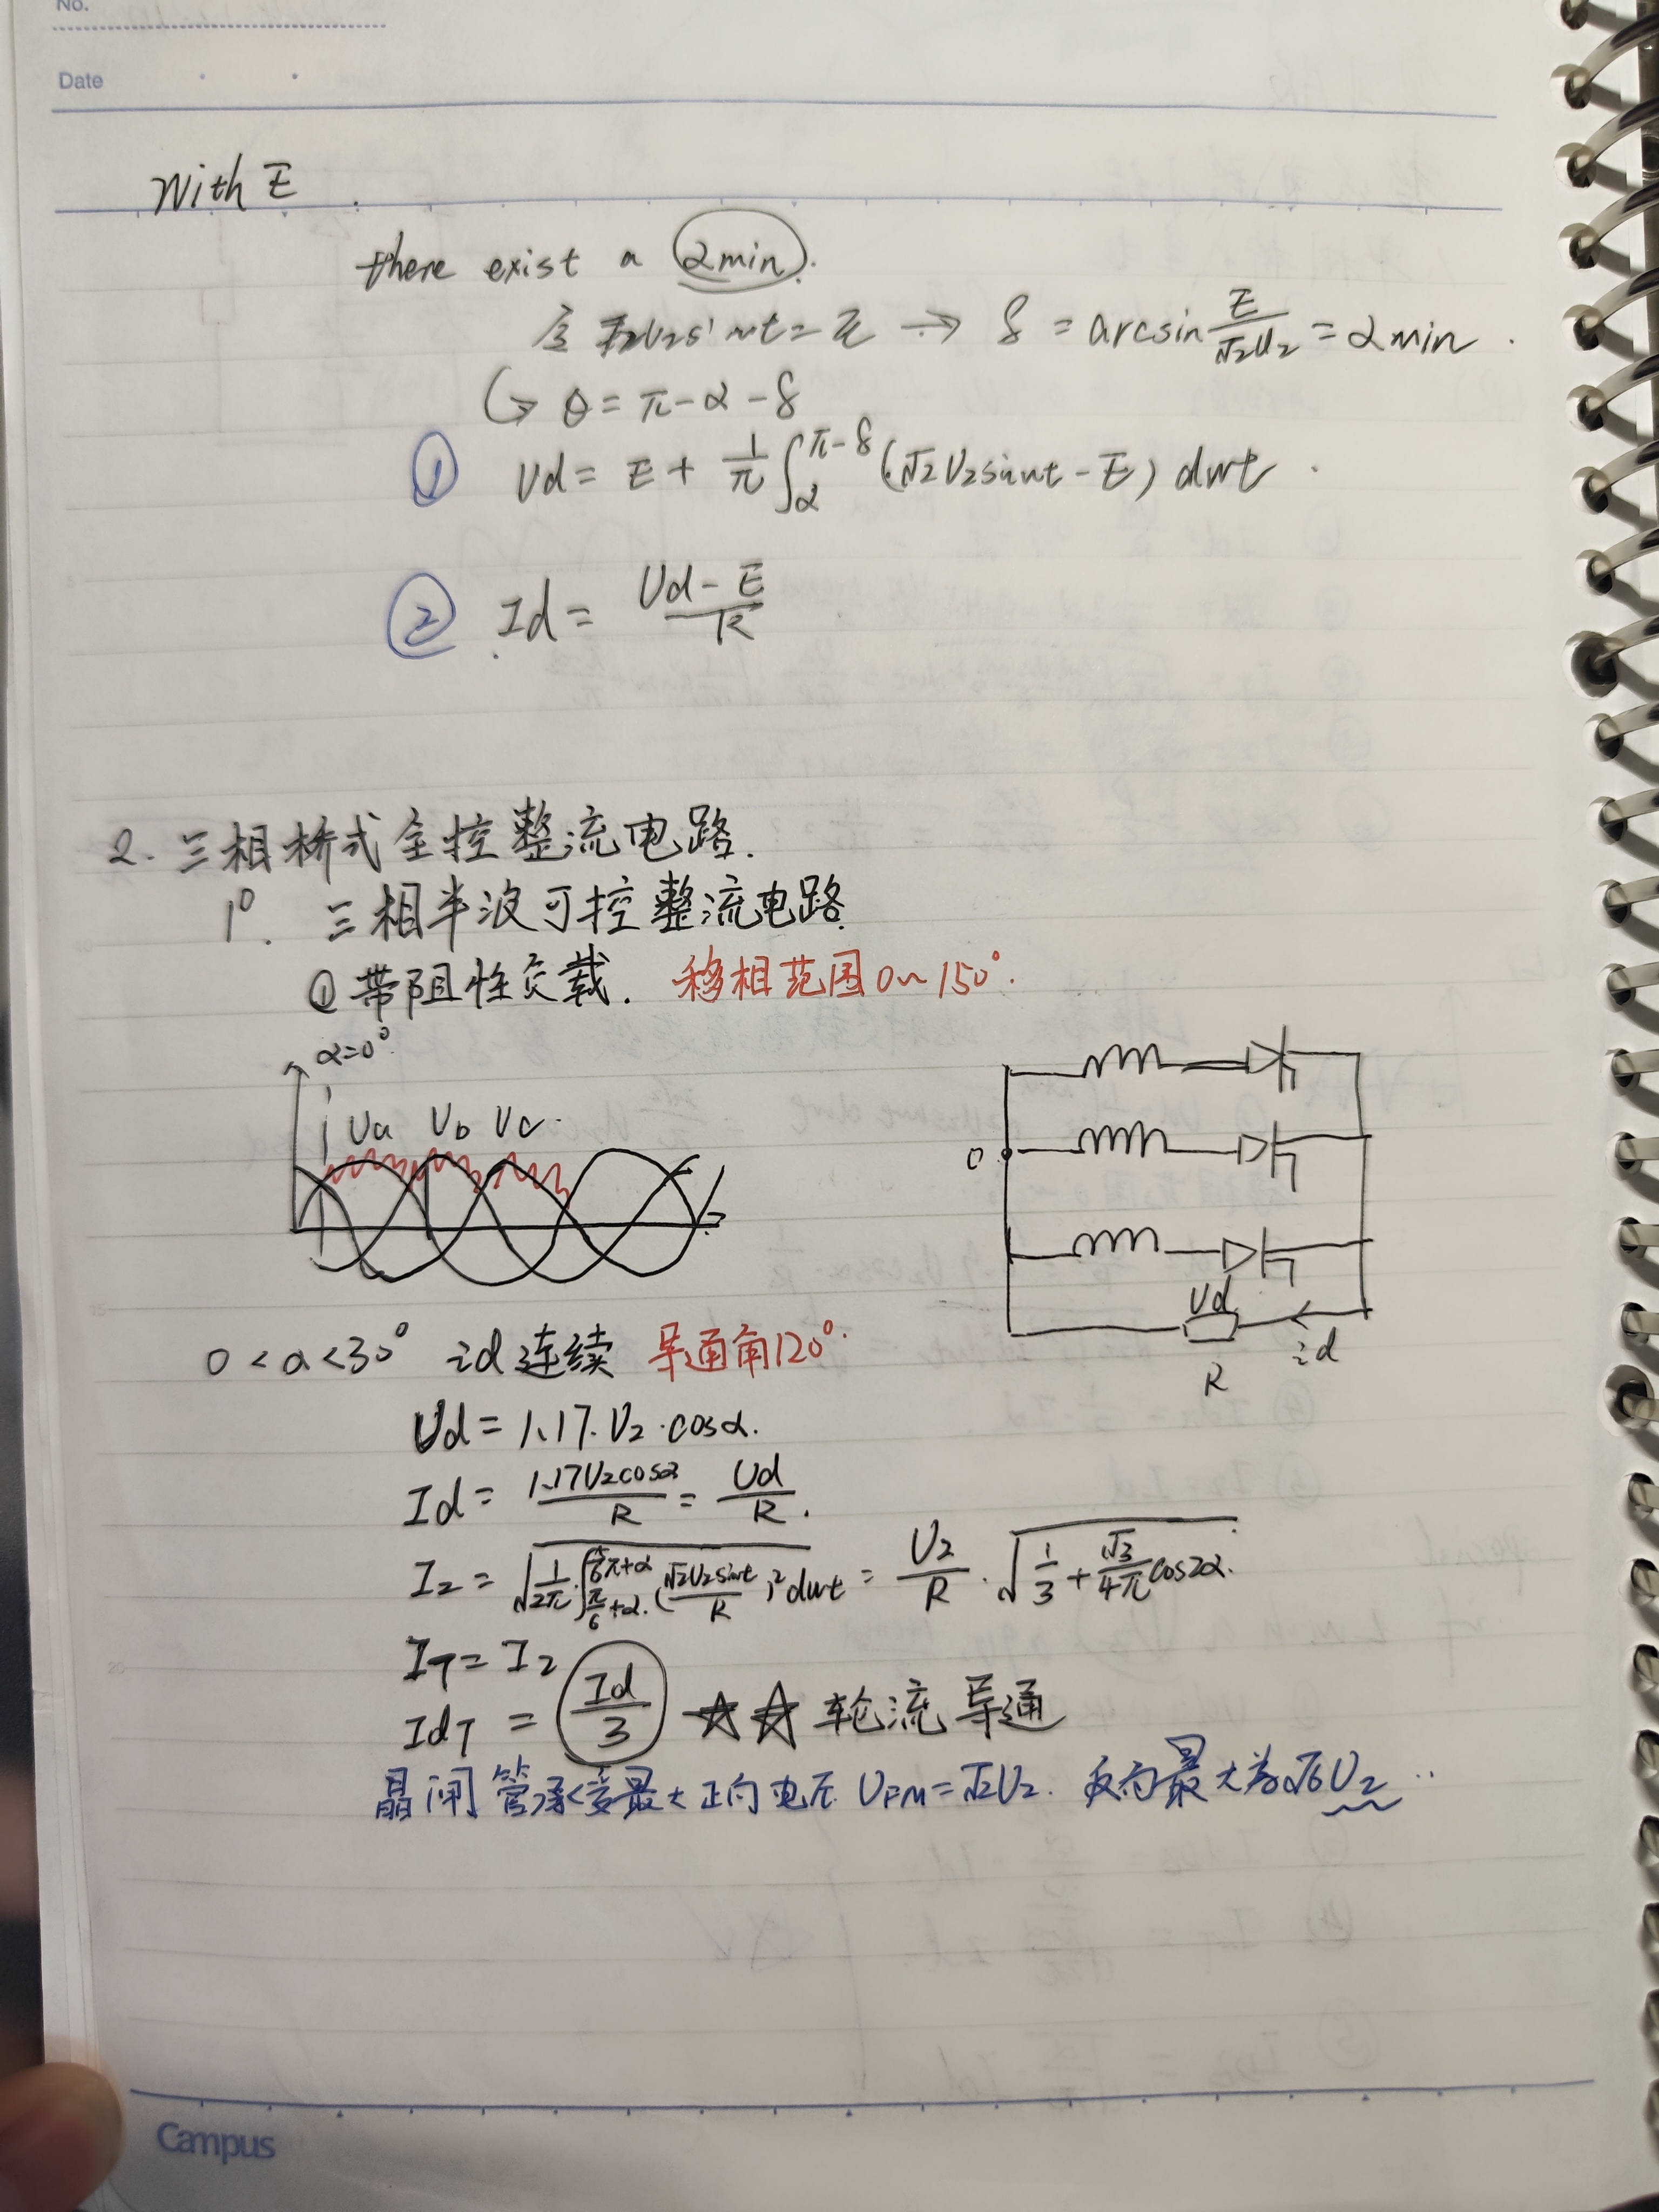 No.
Date
With E
there exist a αmin.
令 √2U2sinwt=E → δ = arcsin E/√2U2 = αmin.
↳ θ = π-α-δ
① Ud = E + 1/π ∫_α^{π-δ} (√2U2sinwt-E) dwt.
② Id = (Ud-E)/R
2. 三相桥式全控整流电路.
1°. 三相半波可控整流电路.
① 带阻性负载. 移相范围0~150°.
α=0°.
Ua Ub Uc
0
Ud
id
R
0<α<30° id连续 导通角120°.
Ud = 1.17·U2·cosα.
Id = 1.17U2cosα/R = Ud/R.
I2 = √(1/2π·∫_{π/6+α}^{5/6π+α} (√2U2sinwt/R)² dwt) = U2/R·√(1/3+√3/4π cos2α).
IT = I2
IdT = Id/3 ☆☆ 轮流导通
晶闸管承受最大正向电压 UFM=√2U2. 反向最大为√6U2..
15
20
Campus